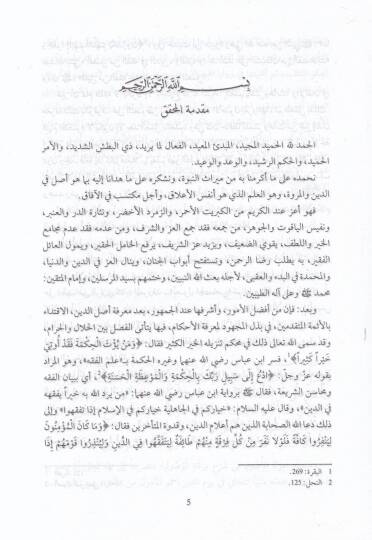 بسم الله الرحمن الرحيم
مقدمة المحقق
الحمد لله الحميد المجيد، المبدئ المعيد، الفعال لما يريد، ذي البطش الشديد، والأمر
الحميد، والحكم الرشيد، والوعد والوعيد.
نحمده على ما أكرمنا به من ميراث النبوة، ونشكره على ما هدانا إليه بما هو أصل في
الدين والمروة، وهو العلم الذي هو أنفس الأعلاق، وأجل مكتسب في الآفاق.
فهو أعز عند الكريم من الكبريت الأحمر، والزمرد الأخضر، ونثارة الدر والعنبر،
ونفيس الياقوت والجوهر، من جمعه فقد جمع العز والشرف، ومن عدمه فقد عدم مجامع
الخير واللطف، يقوي الضعيف، ويزيد عز الشريف، يرفع الخامل الحقير، ويمول العائل
الفقير، به يطلب رضا الرحمن، وتستفتح أبواب الجنان، وينال العز في الدين والدنيا،
والمحمدة في البدء والعقبى، لأجله بعث الله النبيين، وختمهم بسيد المرسلين، وإمام المتقين:
محمد ﷺ وعلى آله الطيبين.
وبعد: فإن من أفضل الأمور، وأشرفها عند الجمهور، بعد معرفة أصل الدين، الاقتداء
بالأئمة المتقدمين، في بذل المجهود لمعرفة الأحكام، فبها يتأتى الفصل بين الحلال والحرام،
وقد سمى الله تعالى ذلك في محكم تنزيله الخير الكثير فقال: ﴿وَمَنْ يُؤْتَ الْحِكْمَةَ فَقَدْ أُوتِيَ
خَيْراً كَثِيراً﴾¹، فسر ابن عباس رضي الله عنهما وغيره الحكمة بـ"علم الفقه"، وهو المراد
بقوله عزّ وجلّ: ﴿ادْعُ إِلَى سَبِيلِ رَبِّكَ بِالْحِكْمَةِ وَالْمَوْعِظَةِ الْحَسَنَةِ﴾²، أي ببيان الفقه
ومحاسن الشريعة، فقال ﷺ برواية ابن عباس رضي الله عنهما: «من يرد الله به خيراً يفقهه
في الدين»، وقال عليه السلام: «خياركم في الجاهلية خياركم في الإسلام إذا تفقهوا» وإلى
ذلك دعا الله الصحابة الذين هم أعلام الدين، وقدوة المتأخرين فقال: ﴿وَمَا كَانَ الْمُؤْمِنُونَ
لِيَنْفِرُوا كَافَّةً فَلَوْلَا نَفَرَ مِنْ كُلِّ فِرْقَةٍ مِنْهُمْ طَائِفَةٌ لِيَتَفَقَّهُوا فِي الدِّينِ وَلِيُنْذِرُوا قَوْمَهُمْ إِذَا
1 البقرة: 269.
2 النحل: 125.
5